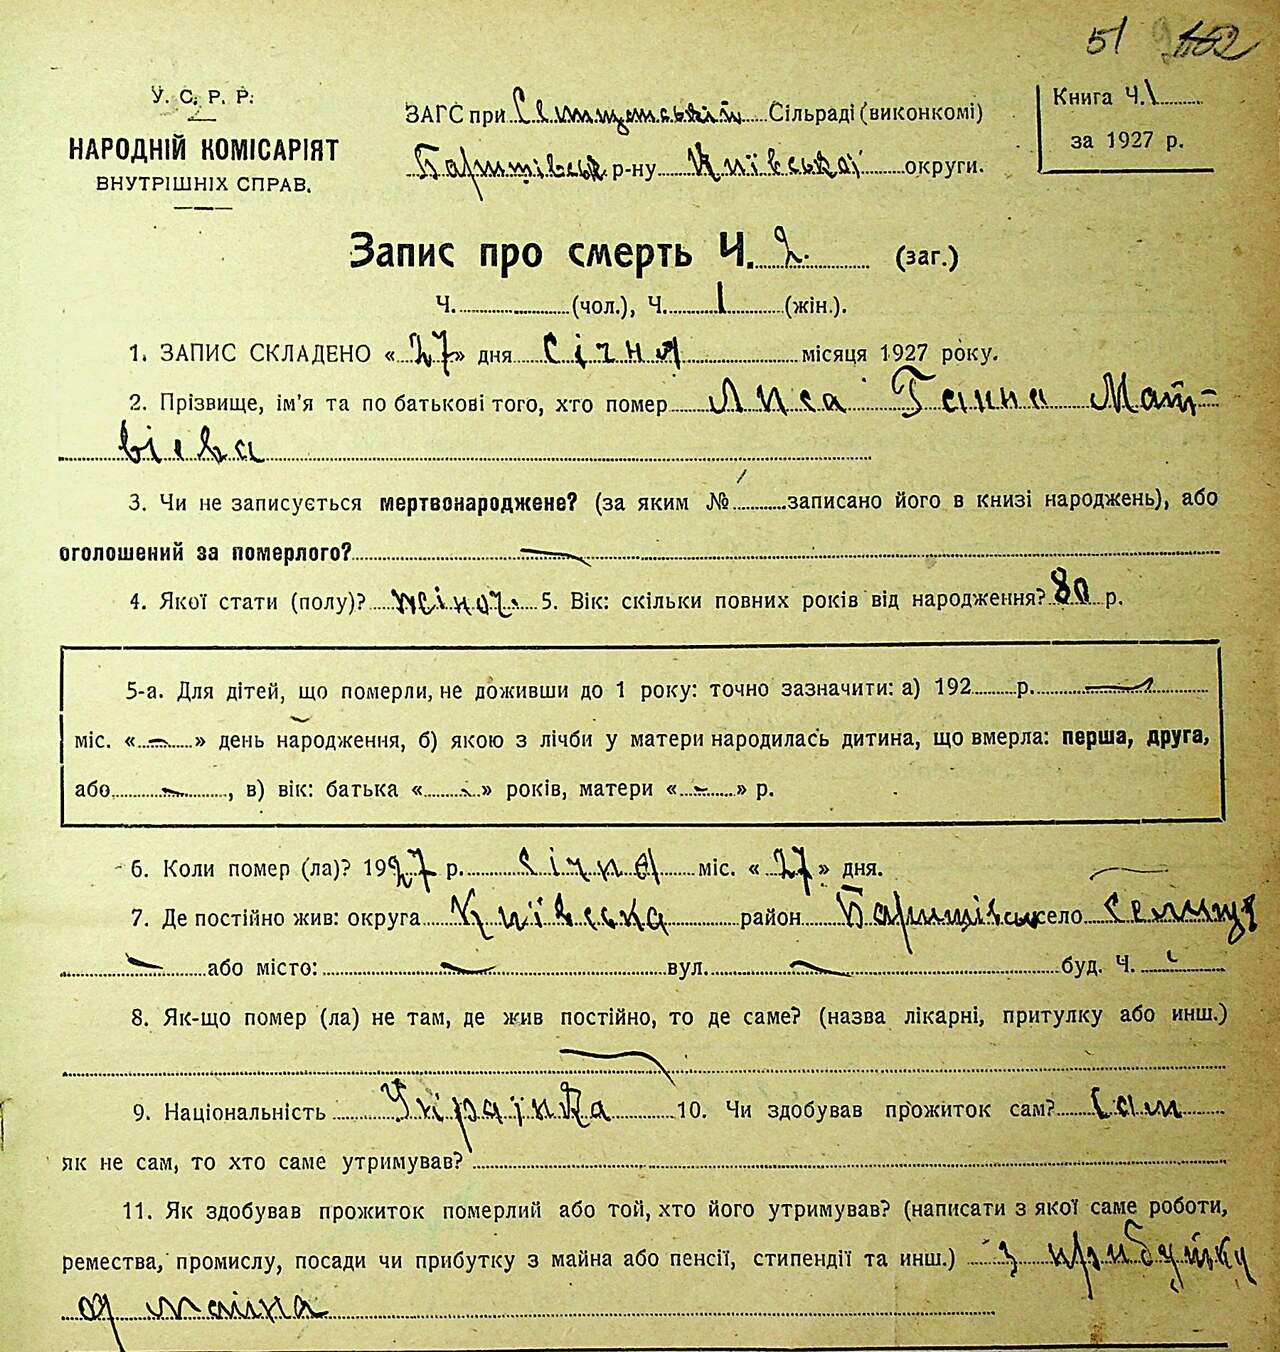 51
У. С. Р. Р.
НАРОДНІЙ КОМІСАРІЯТ
ВНУТРІШНІХ СПРАВ.
ЗАГС при Сілъраді (виконкомі)
Баришівськ. р-ну Київської округи.
Книга Ч. 1
за 1927 р.
Запис про смерть Ч. 2. (заг.)
Ч. (чол.), Ч. 1 (жін.).
1. ЗАПИС СКЛАДЕНО « 27 » дня Січня місяця 1927 року.
2. Прізвище, ім'я та по батькові того, хто помер Лиса Ганна Мат-
вієва
3. Чи не записується мертвонароджене? (за яким № записано його в книзі народжень), або
оголошений за померлого?
4. Якої стати (полу)? жіноч. 5. Вік: скільки повних років від народження? 80 р.
5-а. Для дітей, що померли, не доживши до 1 року: точно зазначити: а) 192 р.
міс. « » день народження, б) якою з лічби у матери народилась дитина, що вмерла: перша, друга,
або , в) вік: батька « » років, матери « » р.
6. Коли помер (ла)? 1927 р. січня міс. « 27 » дня.
7. Де постійно жив: округа Київська район Баришівськ село
або місто: вул. буд. Ч.
8. Як-що помер (ла) не там, де жив постійно, то де саме? (назва лікарні, притулку або инш.)
9. Національність Українка 10. Чи здобував прожиток сам? сам
як не сам, то хто саме утримував?
11. Як здобував прожиток померлий або той, хто його утримував? (написати з якої саме роботи,
ремества, промислу, посади чи прибутку з майна або пенсії, стипендії та инш.) з прибутку
од майна